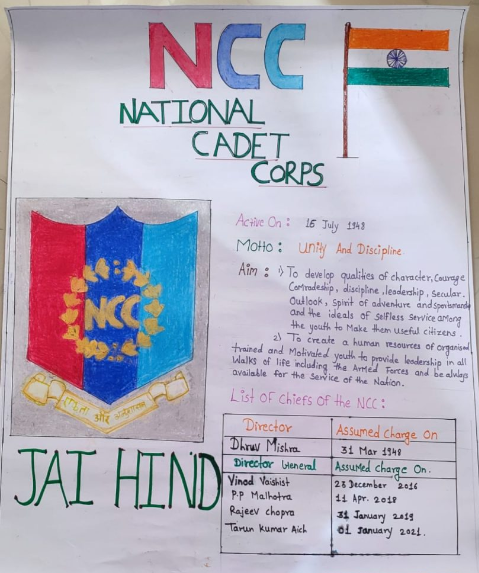 NCC
NATIONAL
CADET
CORPS
Active On : 15 July 1948
Motto : Unity And Discipline
Aim : 1) To develop qualities of character, Courage
Comradeship, discipline, leadership, Secular.
Outlook, spirit of adventure and sportsmanship
and the ideals of Selfless Service among
the youth to Make them useful citizens.
2) To create a human resources of organised
trained and Motivated youth to provide leadership in all
Walks of life including the Armed Forces and be always
available for the Service of the Nation.
NCC
एकता और अनुशासन
JAI HIND
List Of Chiefs Of the NCC :
Director Assumed Charge On
Dhruv Mishra 31 Mar 1948
Director General Assumed Charge On.
Vinod Vaishist 23 December 2016
P.P Malhotra 11 Apr. 2018
Rajeev Chopra 31 January 2019
Tarun Kumar Aich 01 January 2021.